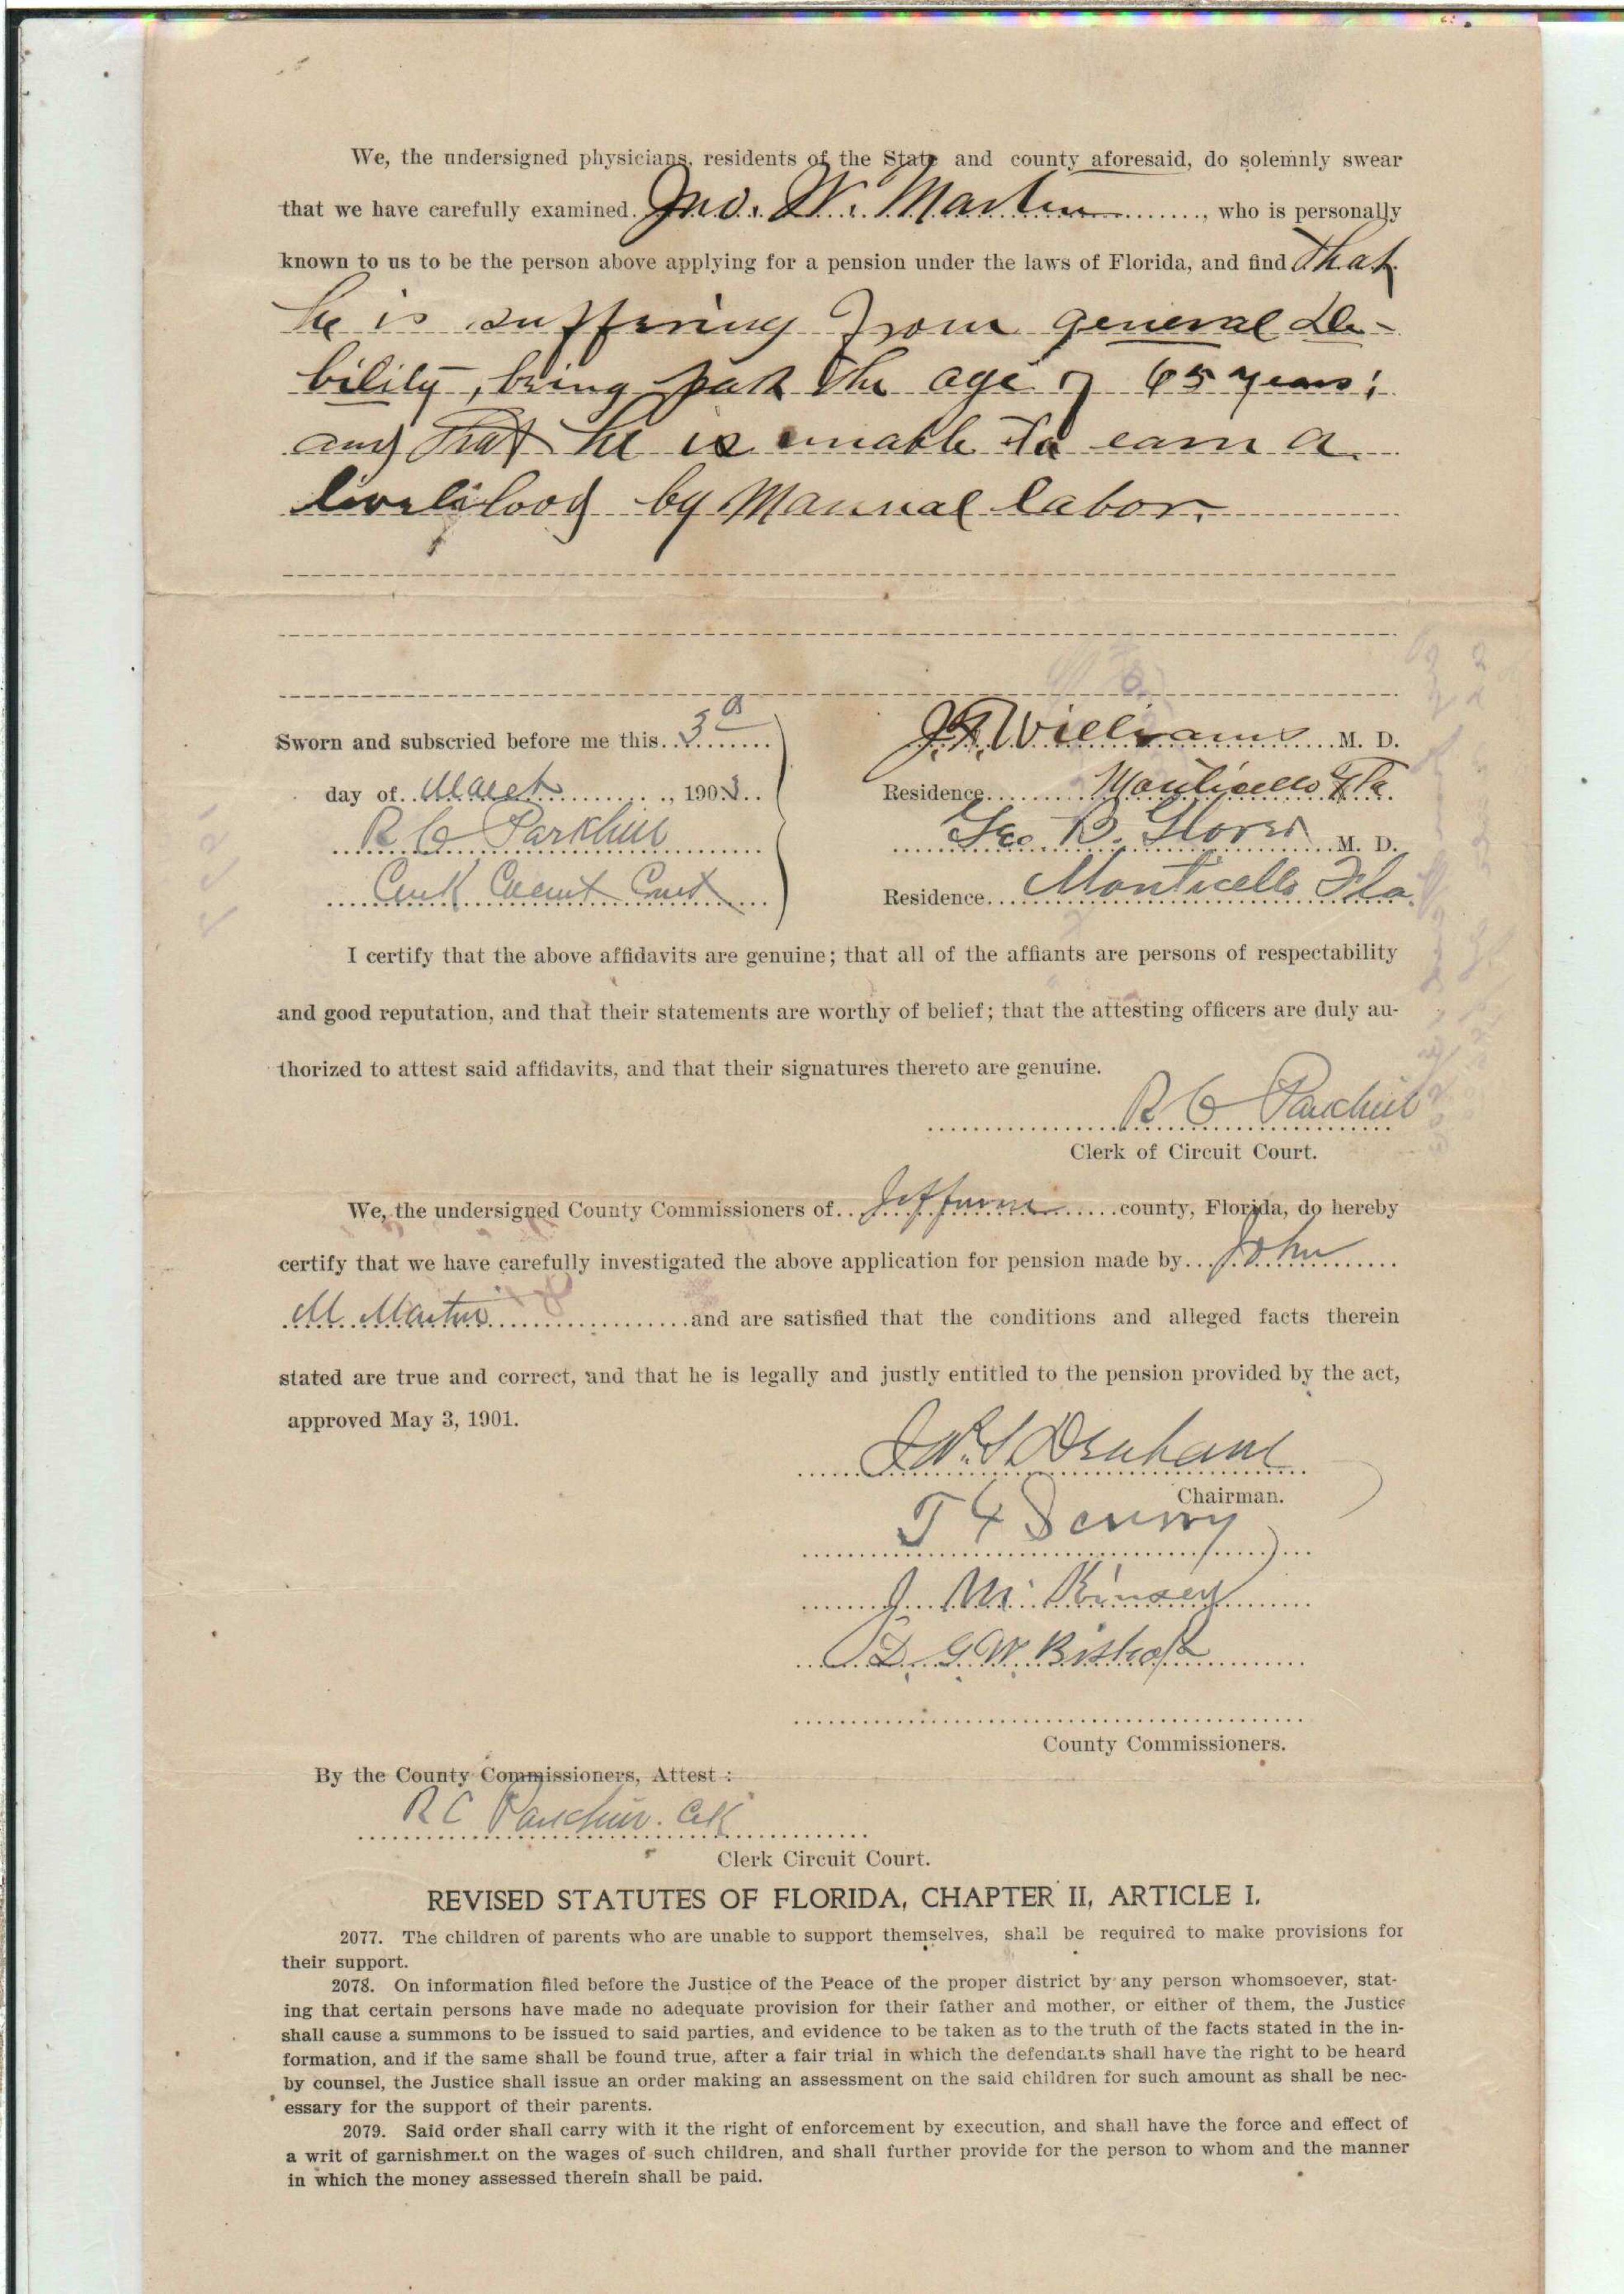 We, the undersigned physicians, residents of the State and county aforesaid, do solemnly swear
that we have carefully examined Jno. W. Martin, who is personally
known to us to be the person above applying for a pension under the laws of Florida, and find that
he is suffering from general de-
bility, being past the age of 65 years;
and that he is unable to earn a
livelihood by Manual labor.
Sworn and subscried before me this 3d
day of March, 1903
R C Parkhill
Clerk Circuit Court
Williams M. D.
Residence Monticello Fla.
Geo. B. Glover M. D.
Residence Monticello Fla.
I certify that the above affidavits are genuine; that all of the affiants are persons of respectability
and good reputation, and that their statements are worthy of belief; that the attesting officers are duly au-
thorized to attest said affidavits, and that their signatures thereto are genuine.
R C Parkhill
Clerk of Circuit Court.
We, the undersigned County Commissioners of Jefferson county, Florida, do hereby
certify that we have carefully investigated the above application for pension made by John
M. Martin and are satisfied that the conditions and alleged facts therein
stated are true and correct, and that he is legally and justly entitled to the pension provided by the act,
approved May 3, 1901.
Denham
Chairman.
T
J. M. Kinsey
G. W. Bishop
County Commissioners.
By the County Commissioners, Attest:
R C Parkhill. Clk
Clerk Circuit Court.
REVISED STATUTES OF FLORIDA, CHAPTER II, ARTICLE I.
2077. The children of parents who are unable to support themselves, shall be required to make provisions for
their support.
2078. On information filed before the Justice of the Peace of the proper district by any person whomsoever, stat-
ing that certain persons have made no adequate provision for their father and mother, or either of them, the Justice
shall cause a summons to be issued to said parties, and evidence to be taken as to the truth of the facts stated in the in-
formation, and if the same shall be found true, after a fair trial in which the defendants shall have the right to be heard
by counsel, the Justice shall issue an order making an assessment on the said children for such amount as shall be nec-
essary for the support of their parents.
2079. Said order shall carry with it the right of enforcement by execution, and shall have the force and effect of
a writ of garnishment on the wages of such children, and shall further provide for the person to whom and the manner
in which the money assessed therein shall be paid.